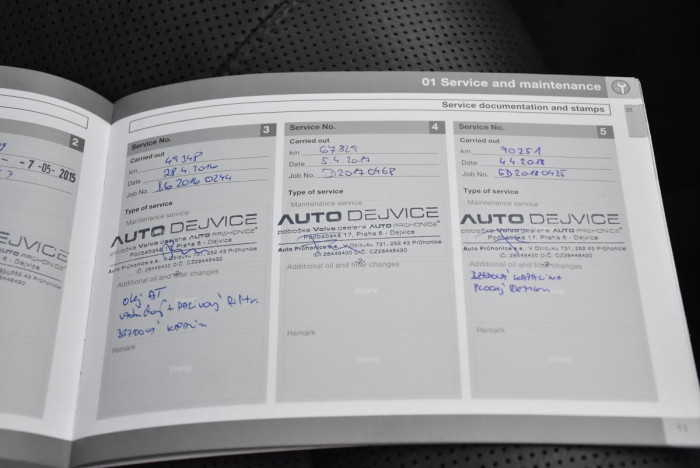 01 Service and maintenance
Service documentation and stamps
01
2
- 7 -05- 2015
EJVICE
AUTO PRŮHONICE
Service No. 3
Carried out
km 49348
Date 28.4.2016
Job No.
Type of service
Maintenance service
AUTO DEJVICE
pobočka Volvo dealera AUTO PRŮHONICE
Podbabská 17, Praha 6 - Dejvice
Auto Průhonice a.s., V Oblouku 731, 252 43 Průhonice
IČ: 28448430 DIČ: CZ28448430
Additional oil and filter changes
olej AT
BRZDOVÁ KAPALIN
Remark
Stamp
Service No. 4
Carried out
km 67829
Date 5.4.2017
Job No.
Type of service
Maintenance service
AUTO DEJVICE
pobočka Volvo dealera AUTO PRŮHONICE
Podbabská 17, Praha 6 - Dejvice
Auto Průhonice a.s., V Oblouku 731, 252 43 Průhonice
IČ: 28448430 DIČ: CZ28448430
Additional oil and filter changes
Remark
Stamp
Service No. 5
Carried out
km 90251
Date 4.4.2018
Job No.
Type of service
Maintenance service
AUTO DEJVICE
pobočka Volvo dealera AUTO PRŮHONICE
Podbabská 17, Praha 6 - Dejvice
Auto Průhonice a.s., V Oblouku 731, 252 43 Průhonice
IČ: 28448430 DIČ: CZ28448430
Additional oil and filter changes
BRZDOVÁ KAPALINA
Remark
Stamp
11